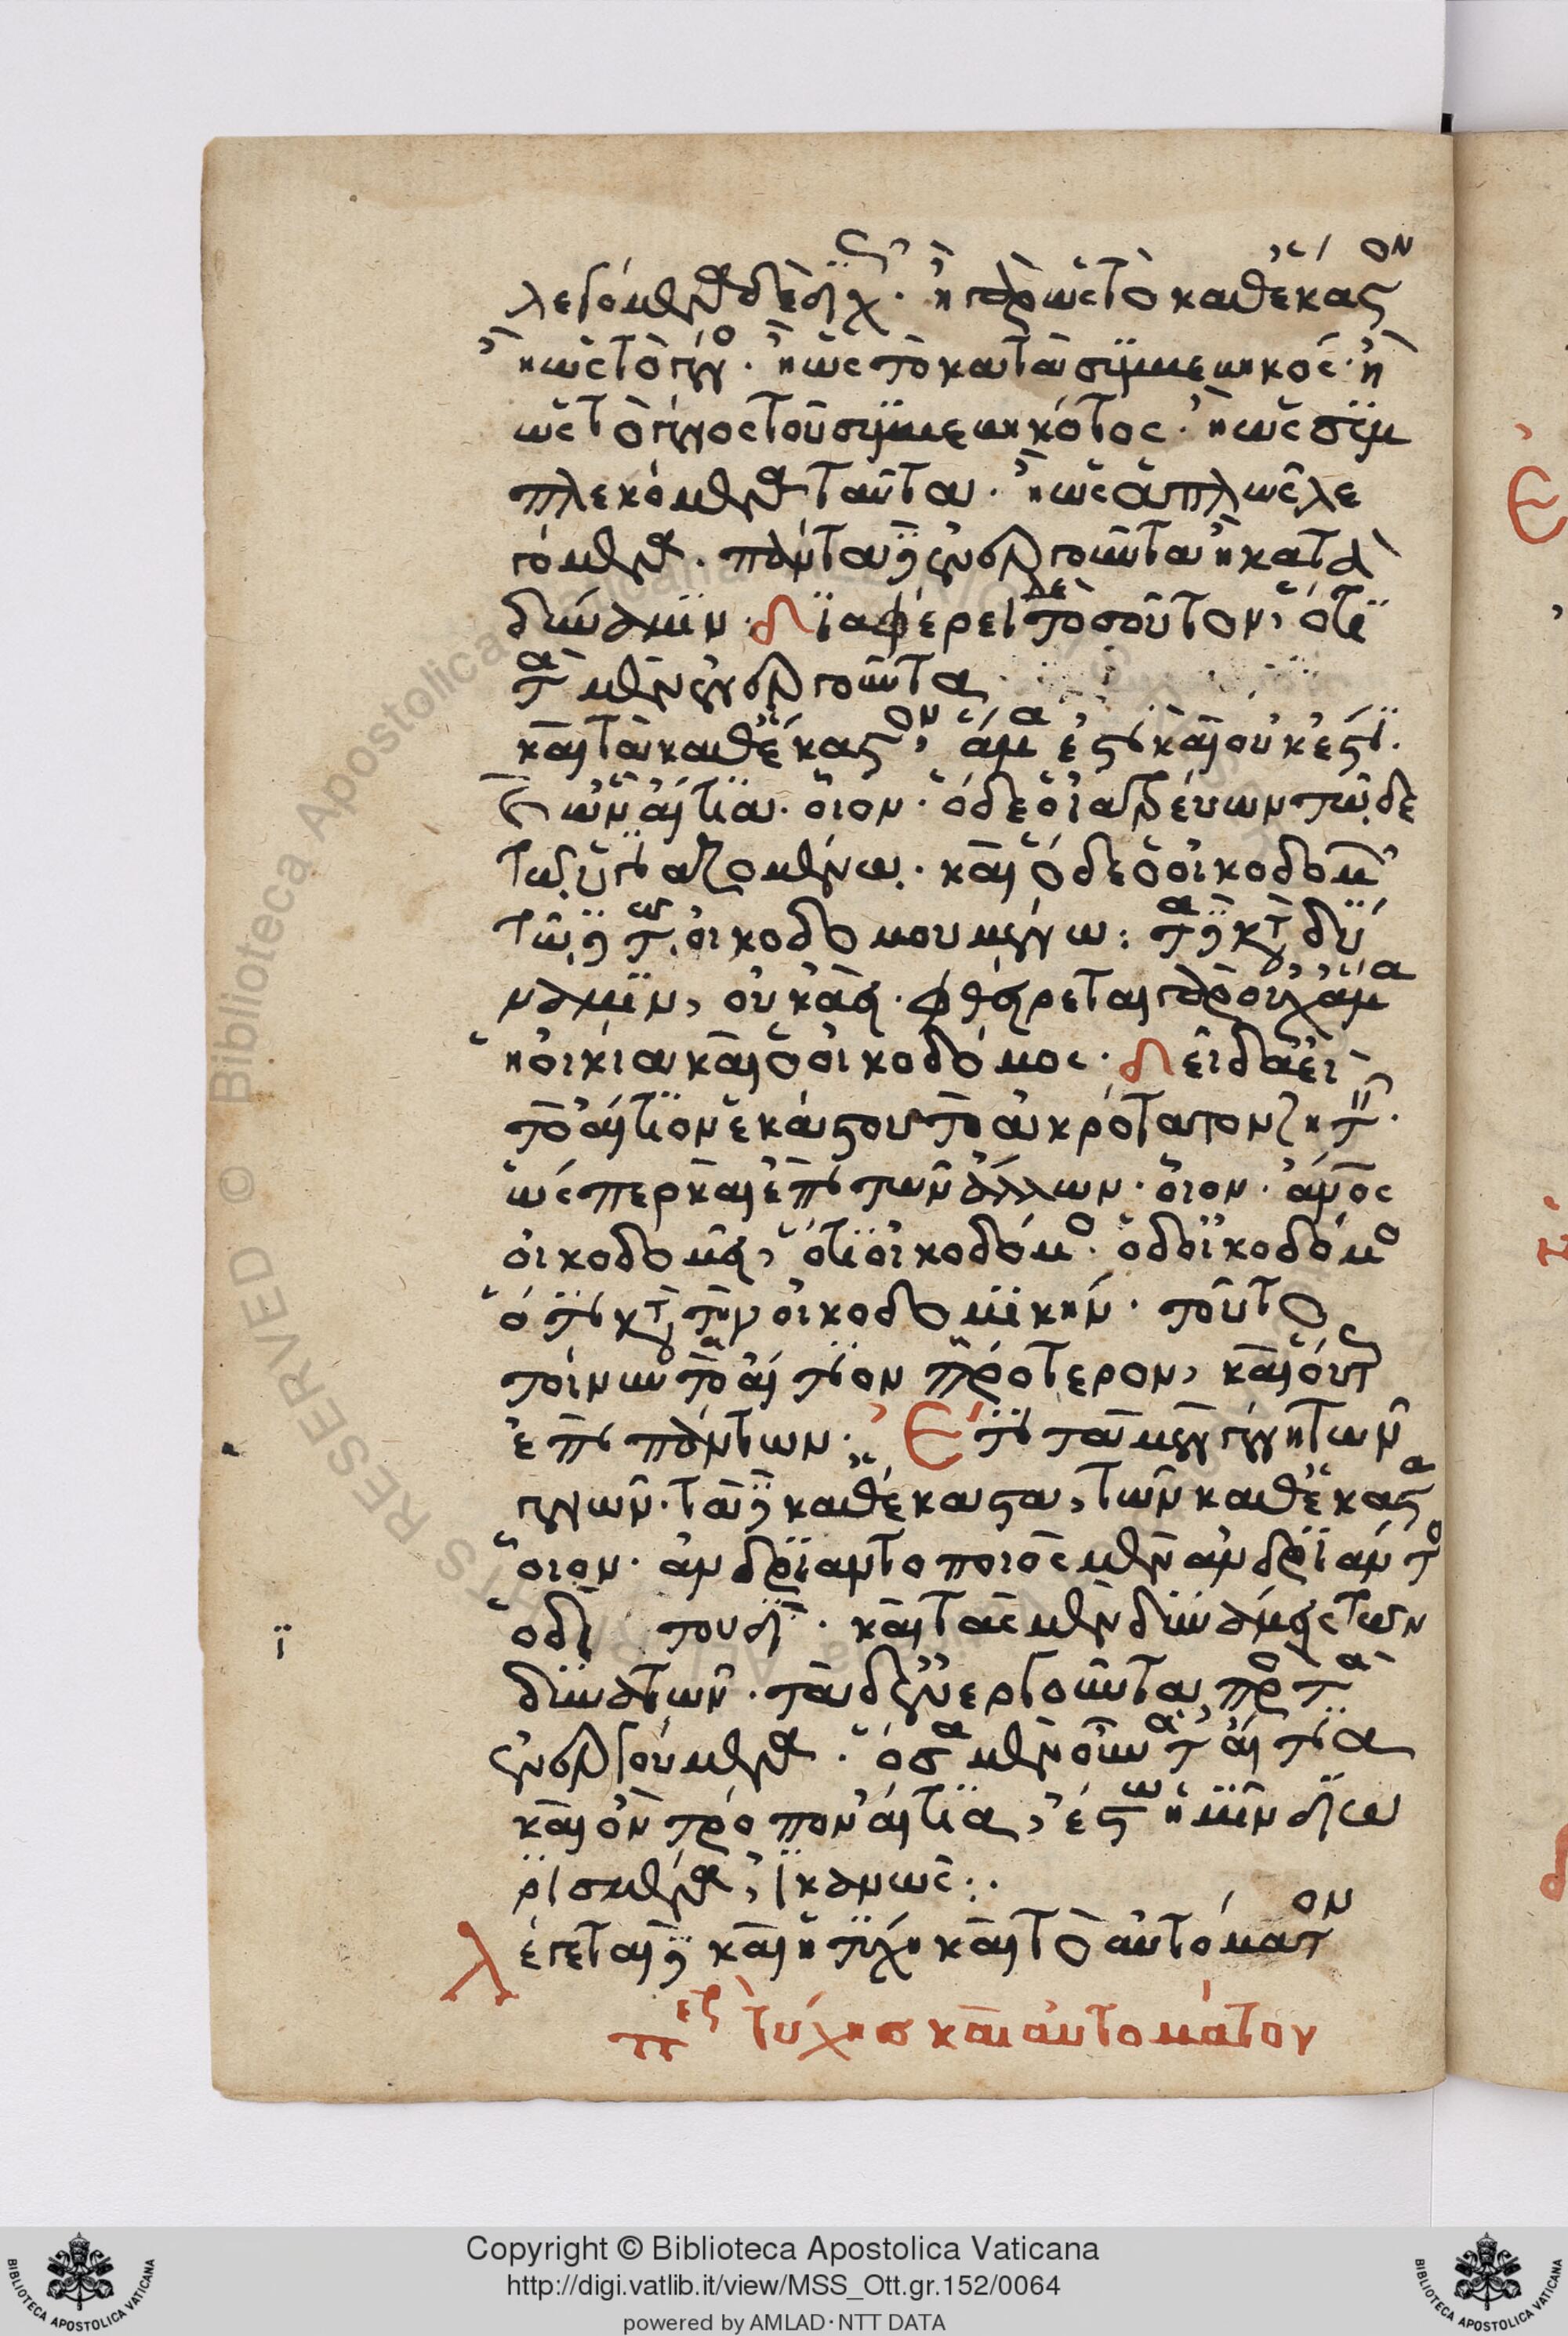 λεγόμενα δὲ διχῶς· ἢ γὰρ ὡς τὸ καθ' ἕκαστον
ἢ ὡς τὸ γένος· ἢ ὡς τὸ κατὰ συμβεβηκός· ἢ
ὡς τὸ γένος τοῦ συμβεβηκότος· ἢ ὡς συμ
πλεκόμενα ταῦτα· ἢ ὡς ἁπλῶς λε
γόμενα· πάντα δὲ ἐνεργοῦντα ἢ κατὰ
δύναμιν· διαφέρει δὲ τοσοῦτον, ὅτι
τὰ μὲν ἐνεργοῦντα
καὶ τὰ καθ' ἕκαστον, ἅμα ἔστι καὶ οὐκ ἔστι
καὶ ὧν αἴτια· οἷον· ὅδε ὁ ἰατρεύων τῷδε
τῷ ὑγιαζομένῳ· καὶ ὅδε ὁ οἰκοδομῶν
τῷδε τῷ οἰκοδομουμένῳ: τὰ δὲ κατὰ δύ
ναμιν, οὐκ ἀεί· φθείρεται γὰρ οὐχ ἅμα
ἡ οἰκία καὶ ὁ οἰκοδόμος· δεῖ δὲ ἀεὶ
τὸ αἴτιον ἑκάστου τὸ ἀκρότατον ζητεῖν·
ὥσπερ καὶ ἐπὶ τῶν ἄλλων· οἷον· ἄνθρωπος
οἰκοδομεῖ, ὅτι οἰκοδόμος· ὁ δ' οἰκοδόμος
ὅτι κατὰ τὴν οἰκοδομικήν· τοῦτο
τοίνυν τὸ αἴτιον πρότερον, καὶ οὕτως
ἐπὶ πάντων· Ἔτι τὰ μὲν γένη τῶν
γενῶν· τὰ δὲ καθ' ἕκαστα, τῶν καθ' ἕκαστα
οἷον· ἀνδριαντοποιὸς μὲν ἀνδριάντος
ὁδὶ τουδί· καὶ τὰς μὲν δυνάμεις τῶν
δυνατῶν· τὰ δ' ἐνεργοῦντα πρὸς τὰ
ἐνεργούμενα· ὅσα μὲν οὖν τὰ αἴτια
καὶ ὃν τρόπον αἴτια, ἔστω ἡμῖν διω
ρισμένα, ἱκανῶς:·
λέγεται δὲ καὶ ἡ τύχη καὶ τὸ αὐτόματον
περὶ τύχησ καὶ αὐτομάτου
Copyright © Biblioteca Apostolica Vaticana
http://digi.vatlib.it/view/MSS_Ott.gr.152/0064
powered by AMLAD·NTT DATA